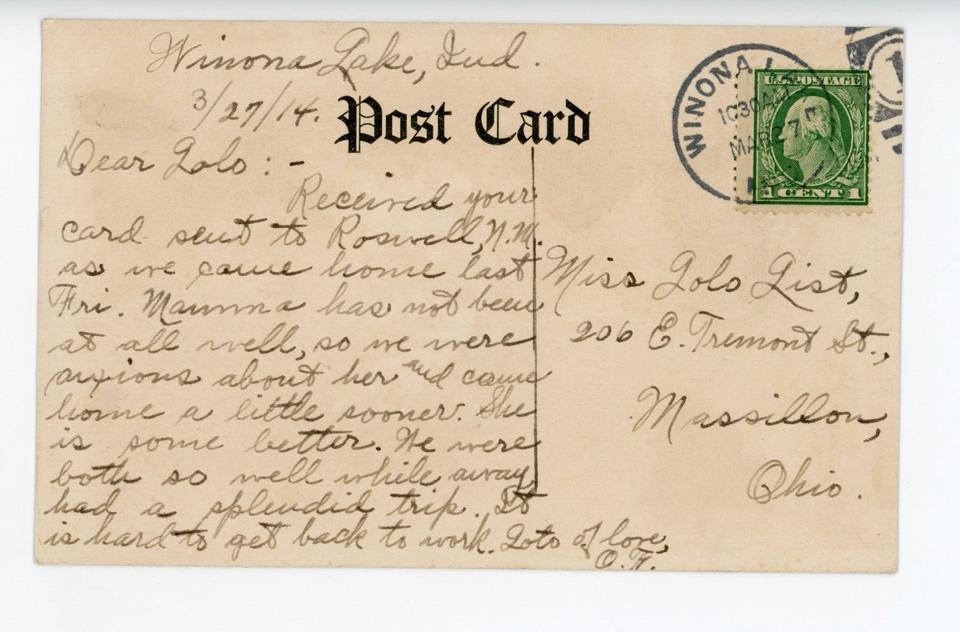 Winona Lake, Ind.
3/27/14.
Post Card
Dear Lolo : -
Received your
card sent to Roswell, N.M.
as we came home last
Fri. Mamma has not been
at all well, so we were
anxious about her and came
home a little sooner. She
is some better. We were
both so well while away,
had a splendid trip. It
is hard to get back to work. Lots of love,
O. F.
WINONA LAKE
1030AM
MAR 27
U.S. POSTAGE
1 CENT 1
Miss Lolo Gist,
206 E. Tremont St.,
Massillon,
Ohio.